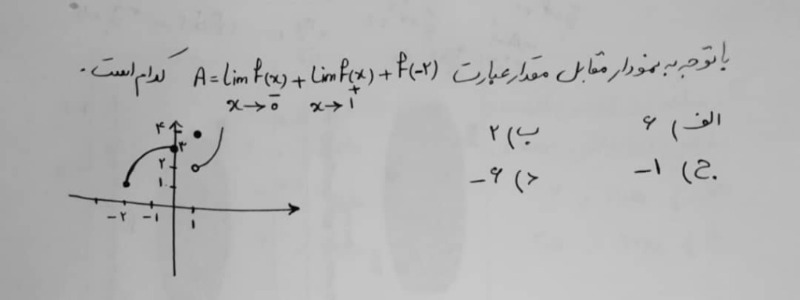 با توجه به نمودار مقابل مقدار عبارت A = lim f(x) + lim f(x) + f(-۲) کدام است.
x→0⁻ x→1⁺
الف) ۶ ب) ۲
ج) -۱ د) -۶
۴
۳
۲
۱
-۲ -۱ ۱